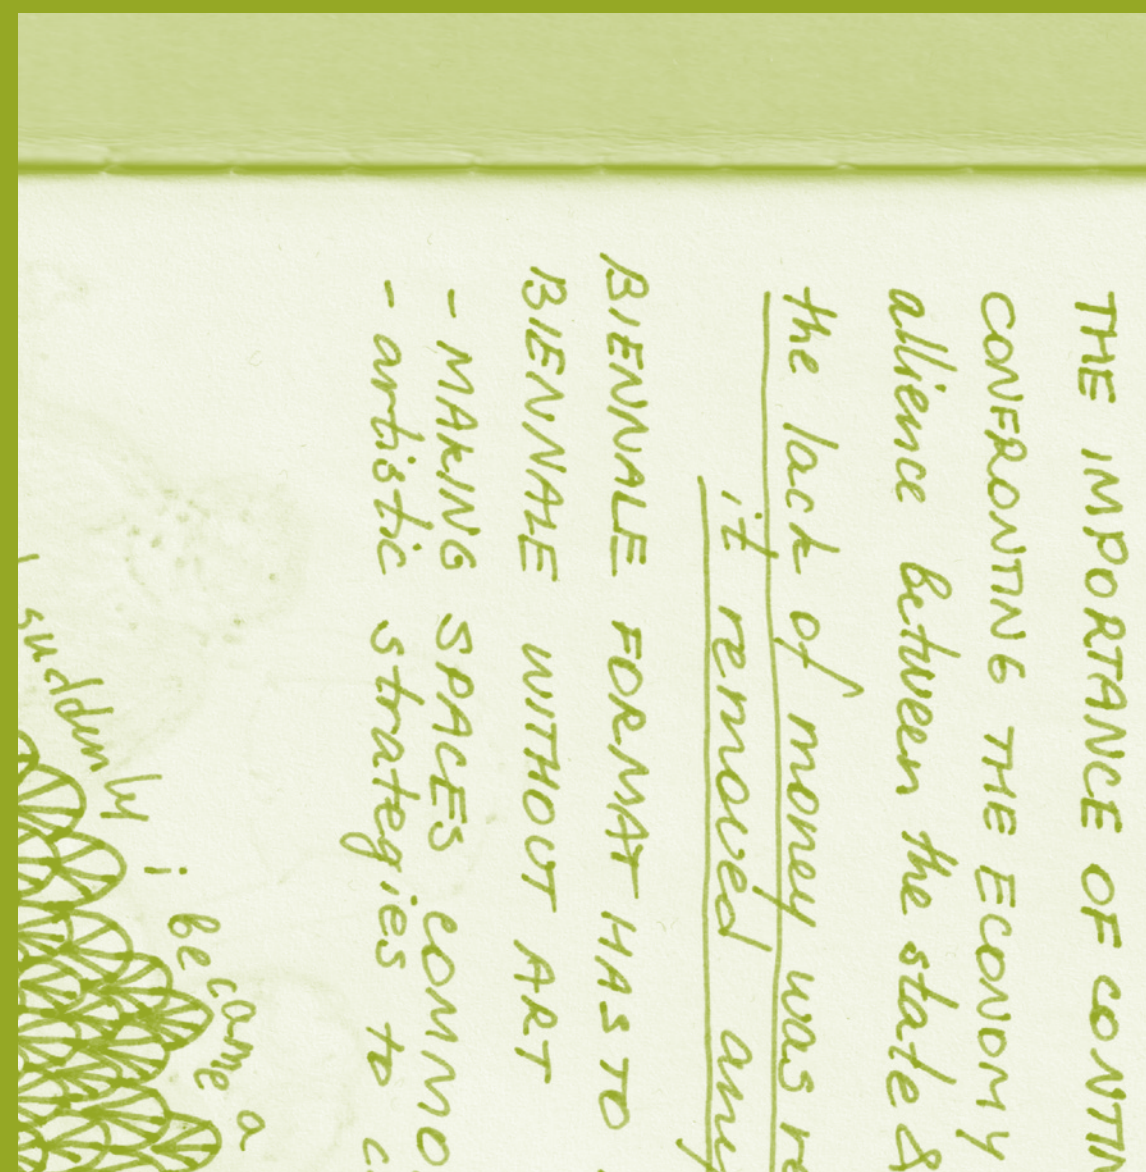 THE IMPORTANCE OF CONTIN
CONFRONTING THE ECONOMY
allience between the state &
the lack of money was re
it removed any
BIENNALE FORMAT HAS TO
BIENNALE WITHOUT ART
- MAKING SPACES COMMO
- artistic strategies to c
suddenly i became a